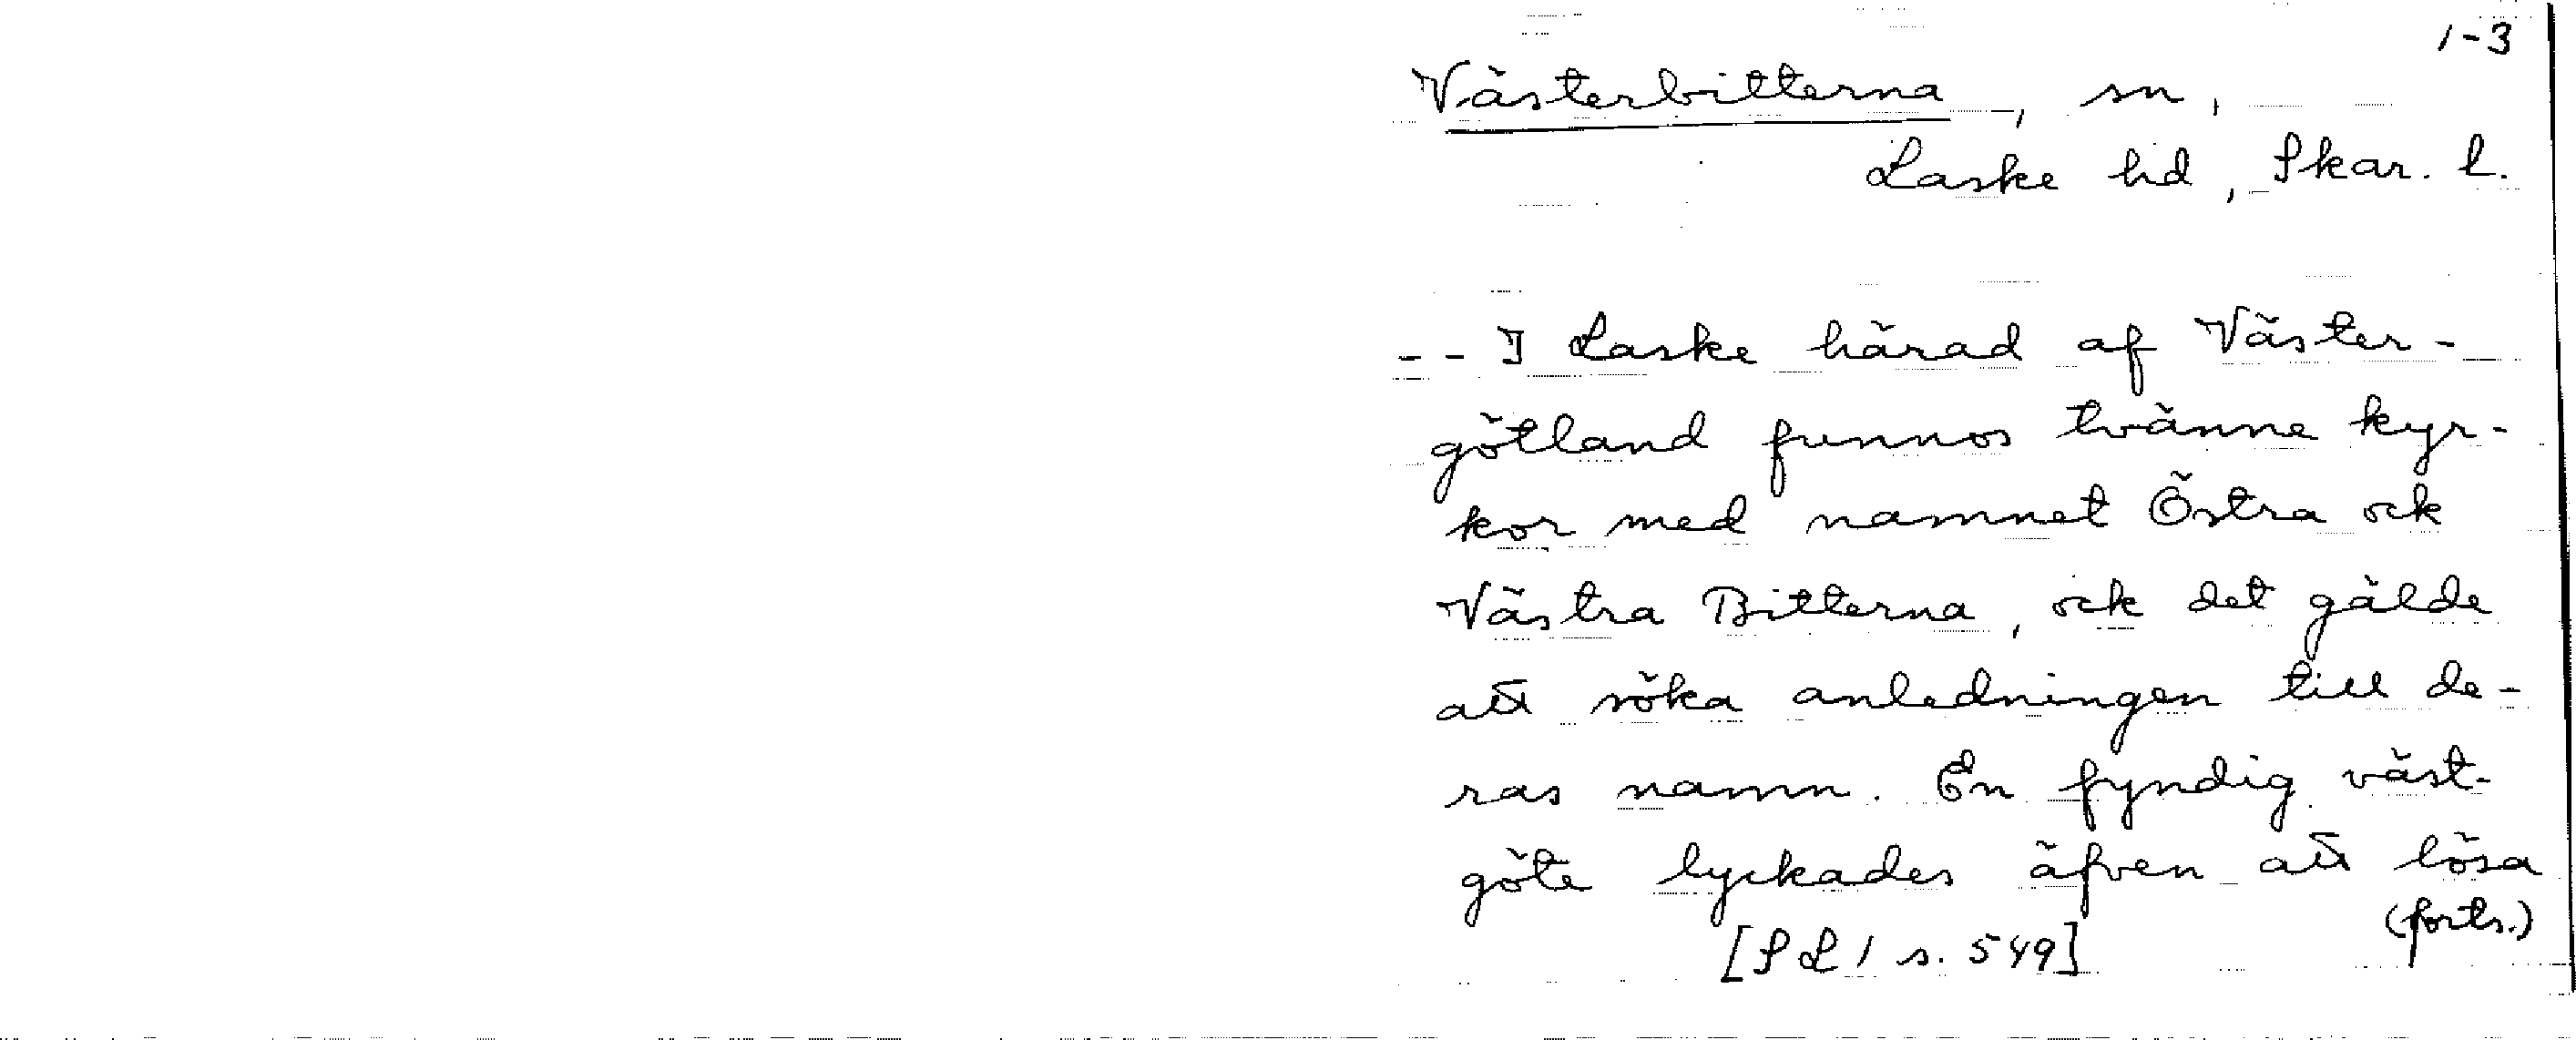 1-3
Västerbitterna, sn,
Laske hd, Skar. l.
-- I Laske härad af Väster-
götland funnos tvänne kyr-
kor med namnet Östra ock
Västra Bitterna, ock det gälde
att söka anledningen till de-
ras namn. En fyndig väst-
göte lyckades äfven att lösa
(forts.)
[SL 1 s. 549]